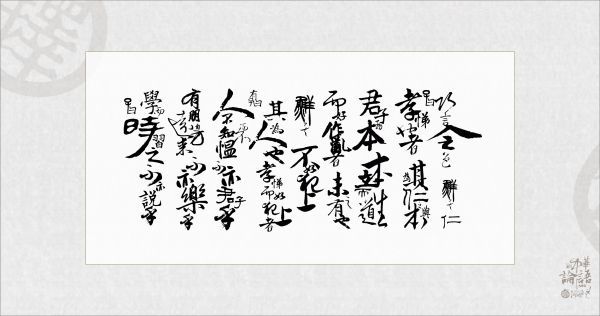 曰學而時習之不亦說乎
有朋自遠方來不亦樂乎
人不知而不慍不亦君子乎
有子曰其為人也孝悌而好犯上者
鮮矣不好犯上
而好作亂者未之有也
君子務本本立而道生
孝悌也者其為仁之本與
曰巧言令色鮮矣仁